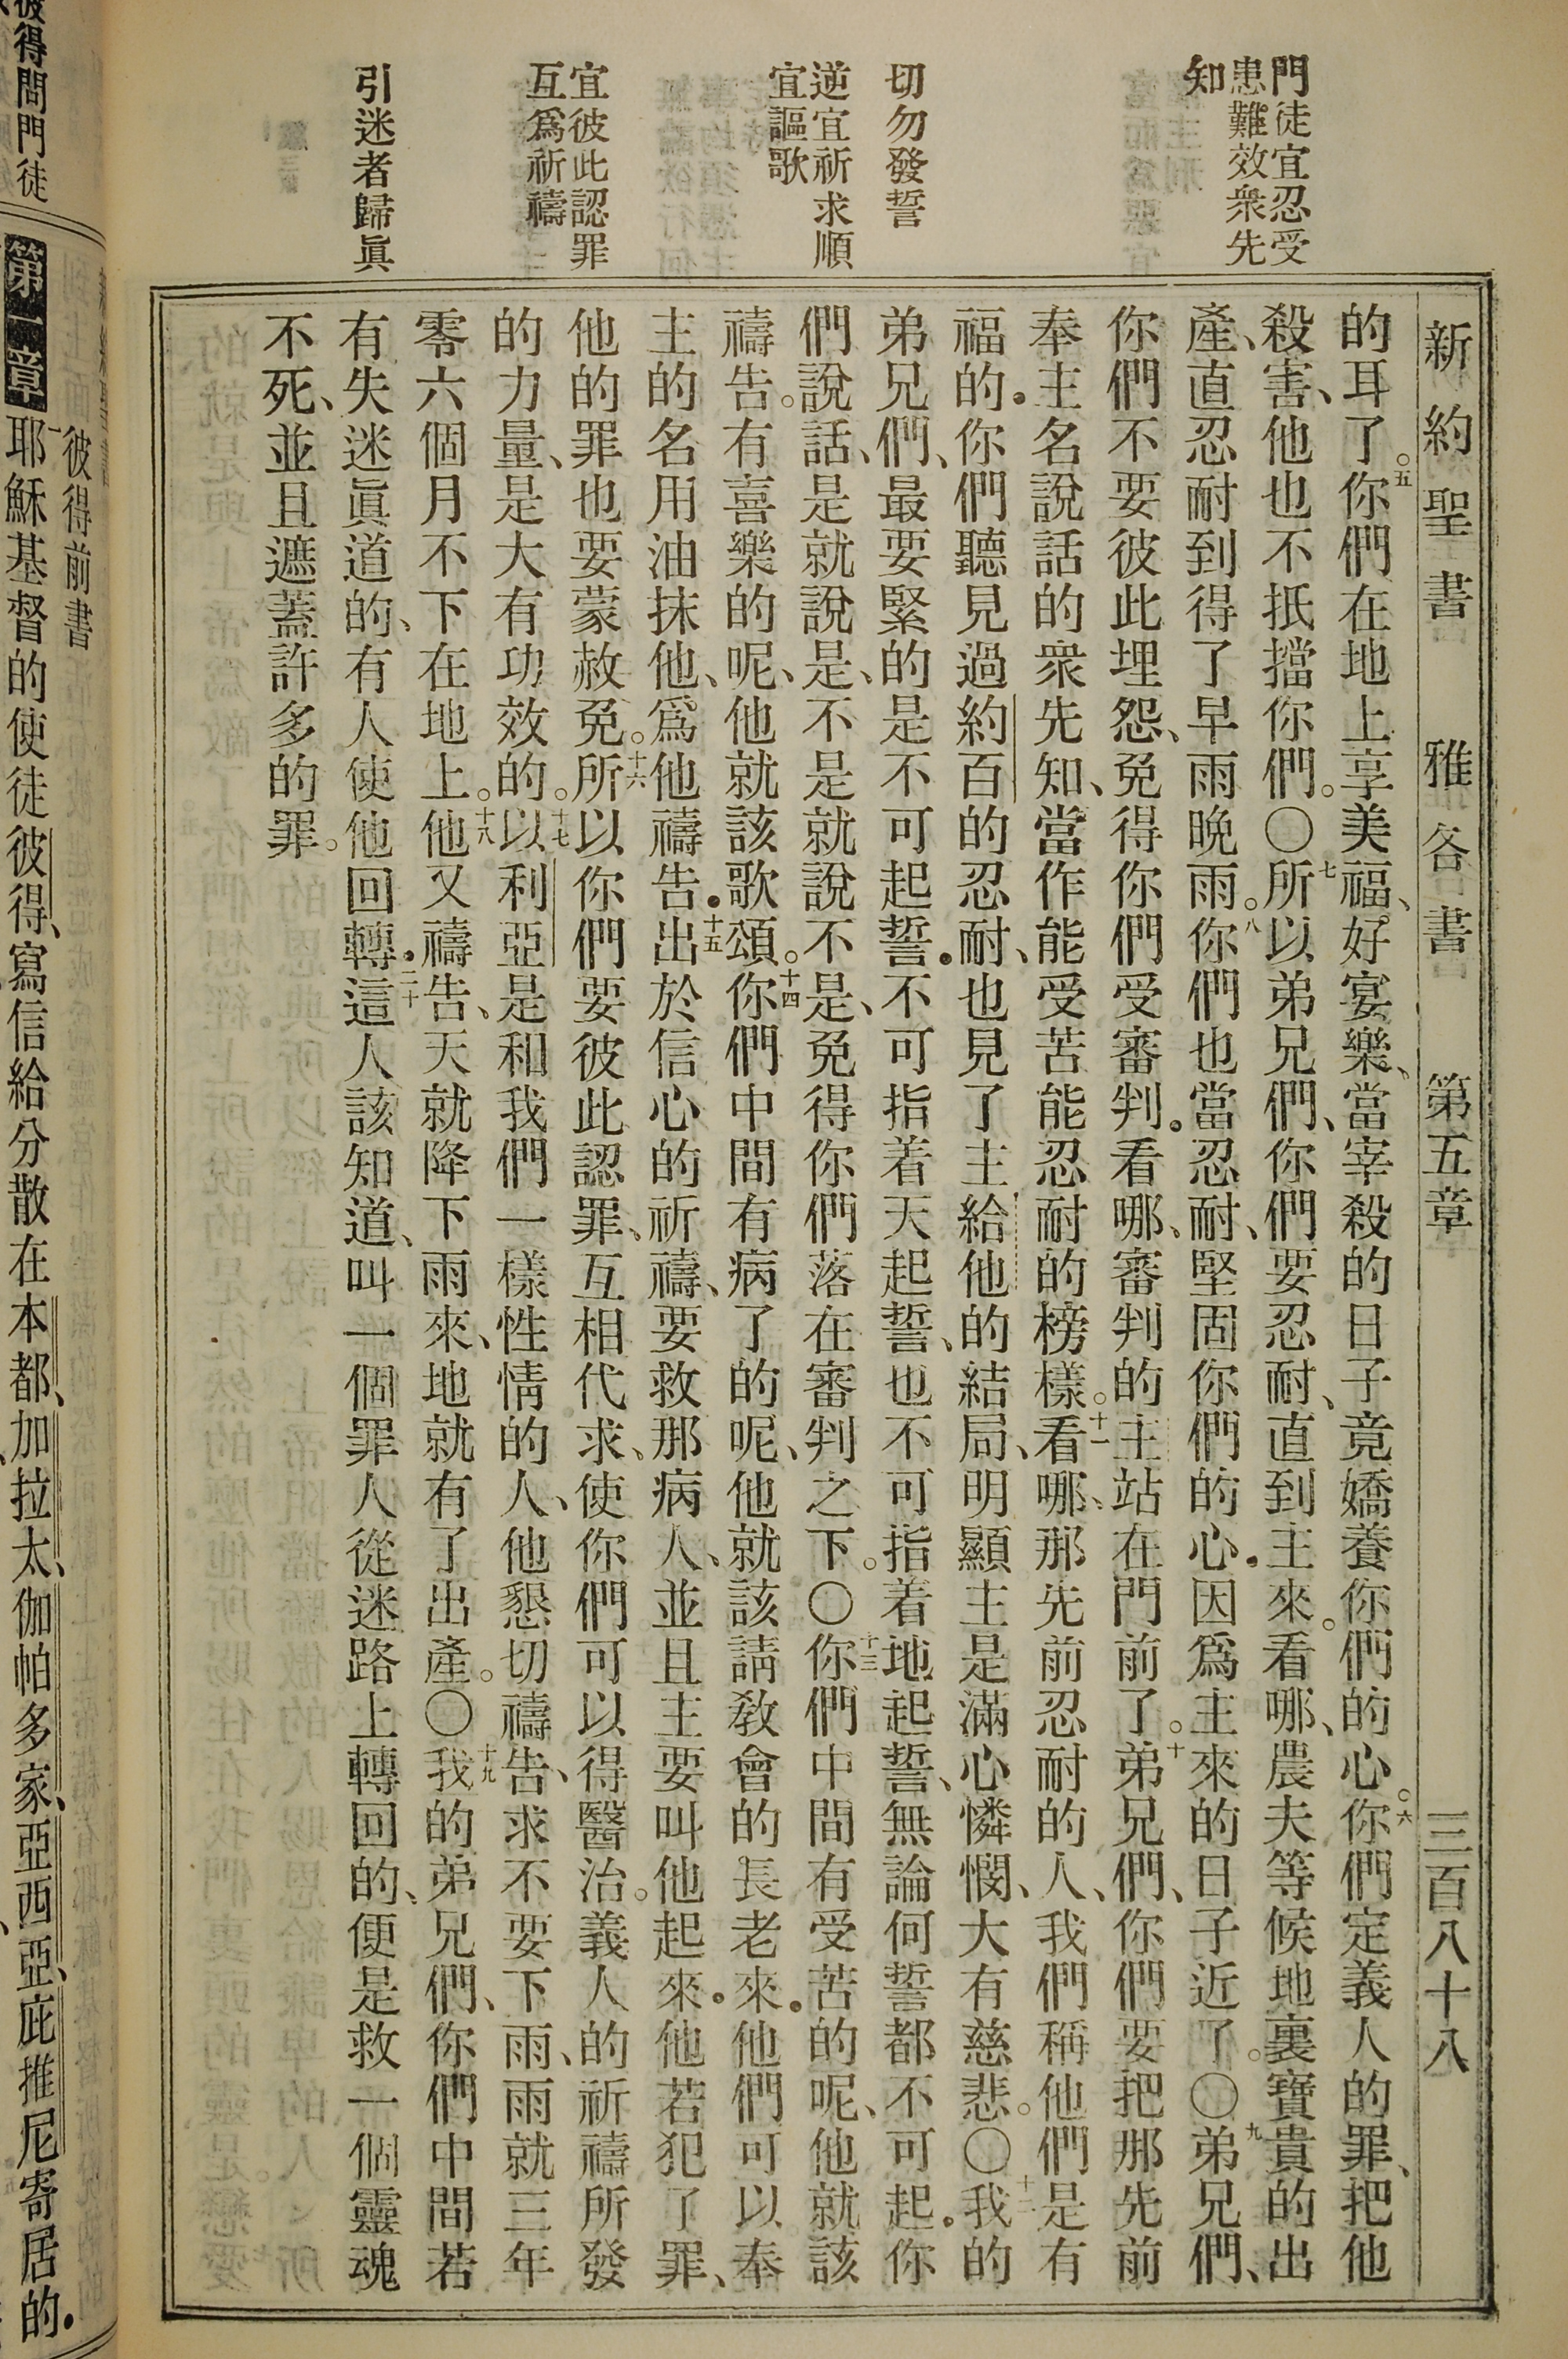 門徒宜忍受
患難效衆先
知
切勿發誓
逆宜祈求順
宜謳歌
宜彼此認罪
互爲祈禱
引迷者歸眞
新約聖書 雅各書 第五章 三百八十八
的耳了。五你們在地上享美福、好宴樂、當宰殺的日子竟嬌養你們的心。六你們定義人的罪、把他
殺害、他也不抵擋你們。〇七所以弟兄們、你們要忍耐、直到主來。看哪、農夫等候地裏寶貴的出
產、直忍耐到得了早雨晚雨。八你們也當忍耐、堅固你們的心．因爲主來的日子近了。〇九弟兄們、
你們不要彼此埋怨、免得你們受審判．看哪、審判的主站在門前了。十弟兄們、你們要把那先前
奉主名說話的衆先知、當作能受苦能忍耐的榜樣。十一看哪、那先前忍耐的人、我們稱他們是有
福的．你們聽見過約百的忍耐、也見了主給他的結局、明顯主是滿心憐憫、大有慈悲。〇十二我的
弟兄們、最要緊的是不可起誓．不可指着天起誓、也不可指着地起誓、無論何誓都不可起．你
們說話、是就說是、不是就說不是、免得你們落在審判之下。〇十三你們中間有受苦的呢、他就該
禱告。有喜樂的呢、他就該歌頌。十四你們中間有病了的呢、他就該請敎會的長老來．他們可以奉
主的名用油抹他、爲他禱告．十五出於信心的祈禱、要救那病人、並且主要叫他起來．他若犯了罪、
他的罪也要蒙赦免。十六所以你們要彼此認罪、互相代求、使你們可以得醫治。義人的祈禱所發
的力量、是大有功效的。十七以利亞是和我們一樣性情的人、他懇切禱告、求不要下雨、雨就三年
零六個月不下在地上。十八他又禱告、天就降下雨來、地就有了出產。〇十九我的弟兄們、你們中間若
有失迷眞道的、有人使他回轉．二十這人該知道、叫一個罪人從迷路上轉回的、便是救一個靈魂
不死、並且遮蓋許多的罪。
彼得問門徒
彼得前書
第一章 一耶穌基督的使徒彼得、寫信給分散在本都、加拉太、伽帕多家、亞西亞、庇推尼寄居的．